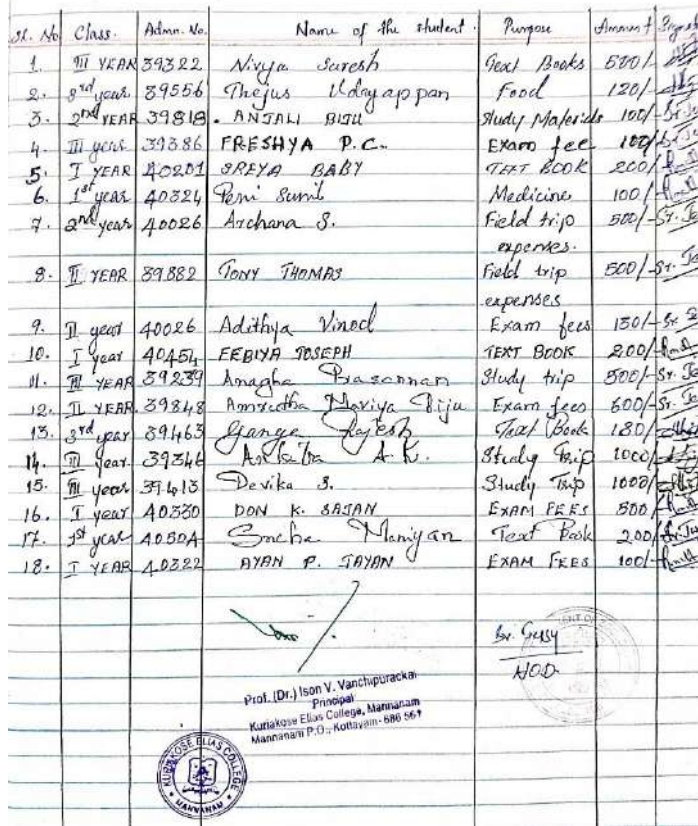 Sl. No Class. Admn. No. Name of the student. Purpose Amount
1. III YEAR 39322 Nivya Suresh Text Books 500/-
2. 3rd year 39556 Thejus Udayappan Food 120/-
3. 2nd YEAR 39818 . ANJALI BIJU Study Materials 100/-
4. III year 39386 FRESHYA P.C. Exam fee 100/-
5. I YEAR 40201 SREYA BABY TEXT BOOK 200/-
6. 1st year 40324 Sunil Medicine 100/-
7. 2nd year 40026 Archana S. Field trip 500/- Sr.
expenses.
8. II YEAR 39882 TONY THOMAS Field trip 500/- Sr.
expenses
9. II year 40026 Adithya Vinod Exam fees 150/- Sr.
10. I year 40454 FEBIYA JOSEPH TEXT BOOK 200/-
11. III YEAR 39239 Anagha Prasannan Study trip 500/- Sr.
12. II YEAR. 39848 Amrutha Mariya Biju Exam fees 600/- Sr.
13. 3rd year 39463 Ganga Rajesh Text Book 180/-
14. III year. 39346 A. K. Study Trip 1000/-
15. III year 39413 Devika S. Study Trip 1000/-
16. I year 40330 DON K. SAJAN EXAM FEES 500/
17. 1st year 40504 Sneha Maniyan Text Book 200/
18. I YEAR 40322 AYAN P. JAYAN EXAM FEES 100/-
HOD
Prof. (Dr.) Ison V. Vanchipurackal
Principal
Kuriakose Elias College, Mannanam
Mannanam P.O., Kottayam - 686 561
KURIAKOSE ELIAS COLLEGE
MANNANAM